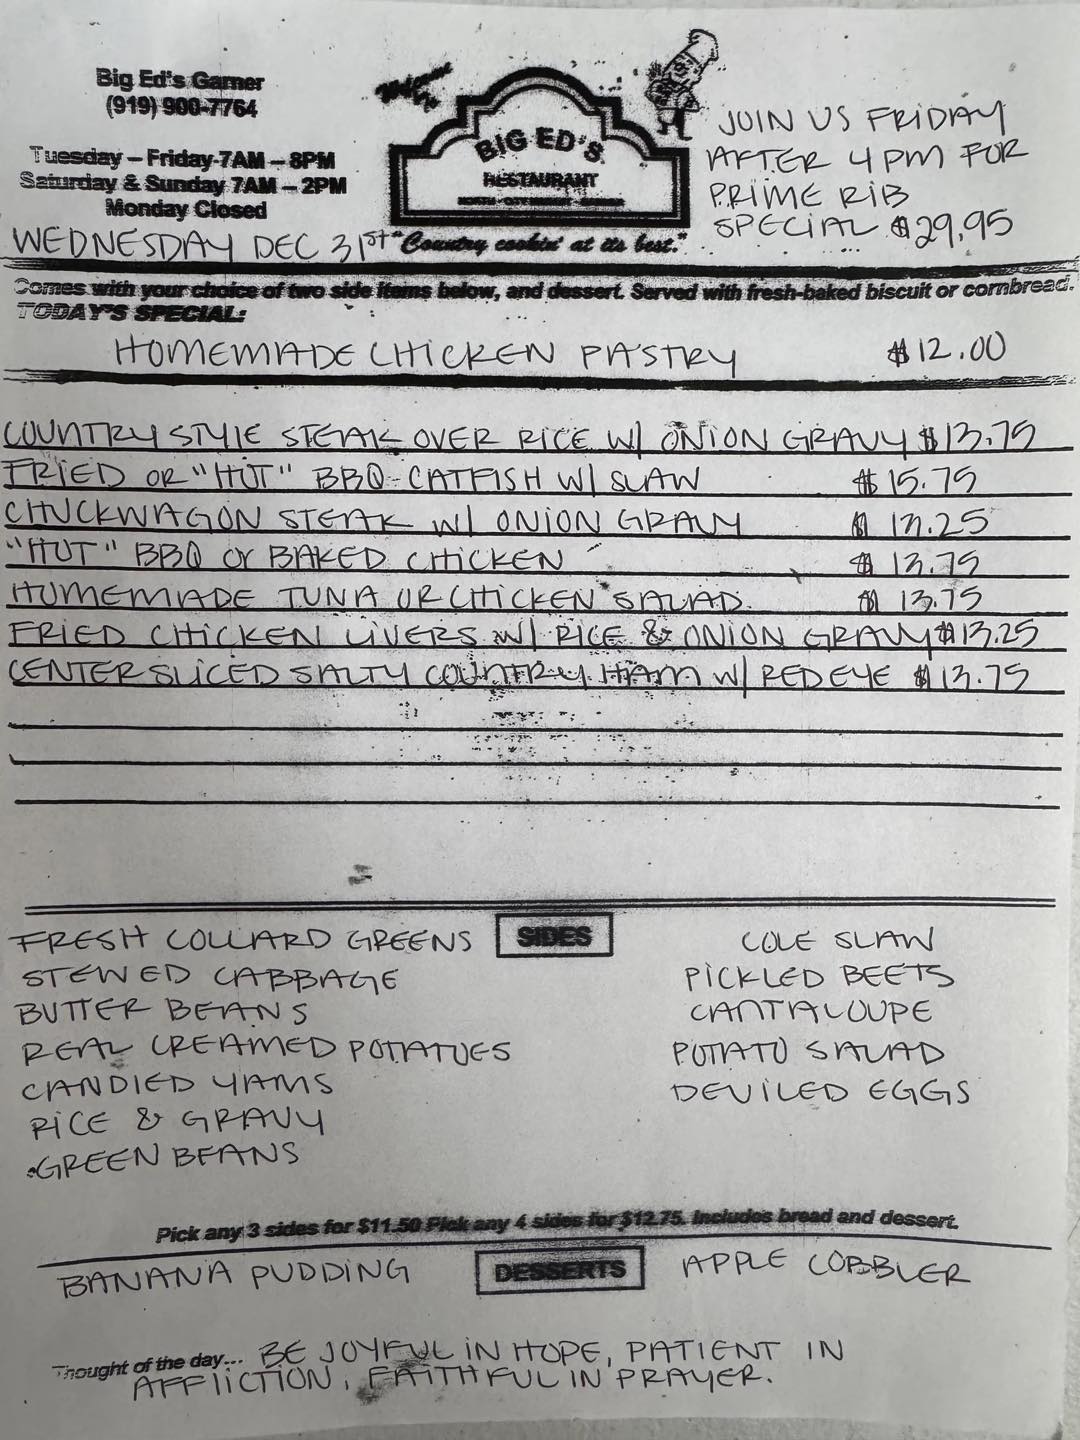 Big Ed's Garner
(919) 900-7764
Tuesday – Friday 7AM – 8PM
Saturday & Sunday 7AM – 2PM
Monday Closed
WEDNESDAY DEC 31st
Welcome To
BIG ED'S
RESTAURANT
"Country cookin' at its best."
JOIN US FRIDAY
AFTER 4PM FOR
PRIME RIB
SPECIAL $29.95
Comes with your choice of two side items below, and dessert. Served with fresh-baked biscuit or cornbread.
TODAY'S SPECIAL:
HOMEMADE CHICKEN PASTRY $12.00
COUNTRY STYLE STEAK OVER RICE W/ ONION GRAVY $13.75
FRIED OR "HOT" BBQ CATFISH W/ SLAW $15.75
CHUCKWAGON STEAK W/ ONION GRAVY $13.25
"HOT" BBQ Or BAKED CHICKEN $13.75
HOMEMADE TUNA OR CHICKEN SALAD $13.75
FRIED CHICKEN LIVERS W/ RICE & ONION GRAVY $13.25
CENTER SLICED SALTY COUNTRY HAM W/ RED EYE $13.75
SIDES
FRESH COLLARD GREENS
STEWED CABBAGE
BUTTER BEANS
REAL CREAMED POTATOES
CANDIED YAMS
RICE & GRAVY
GREEN BEANS
COLE SLAW
PICKLED BEETS
CANTALOUPE
POTATO SALAD
DEVILED EGGS
Pick any 3 sides for $11.50 Pick any 4 sides for $12.75. Includes bread and dessert.
DESSERTS
BANANA PUDDING
APPLE COBBLER
Thought of the day... BE JOYFUL IN HOPE, PATIENT IN
AFFLICTION, FAITHFUL IN PRAYER.